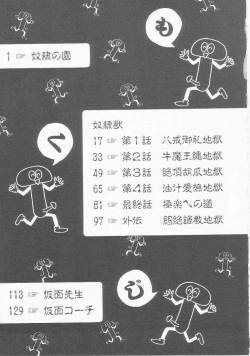 もくじ
1 ☞ 奴隷の園
奴隷獣
17 ☞ 第1話 八戒御礼地獄
33 ☞ 第2話 牛魔王鏡地獄
49 ☞ 第3話 絶頂胡瓜地獄
65 ☞ 第4話 油汁愛撫地獄
81 ☞ 最終話 極楽への道
97 ☞ 外伝 悶絶調教地獄
113 ☞ 仮面先生
129 ☞ 仮面コーチ